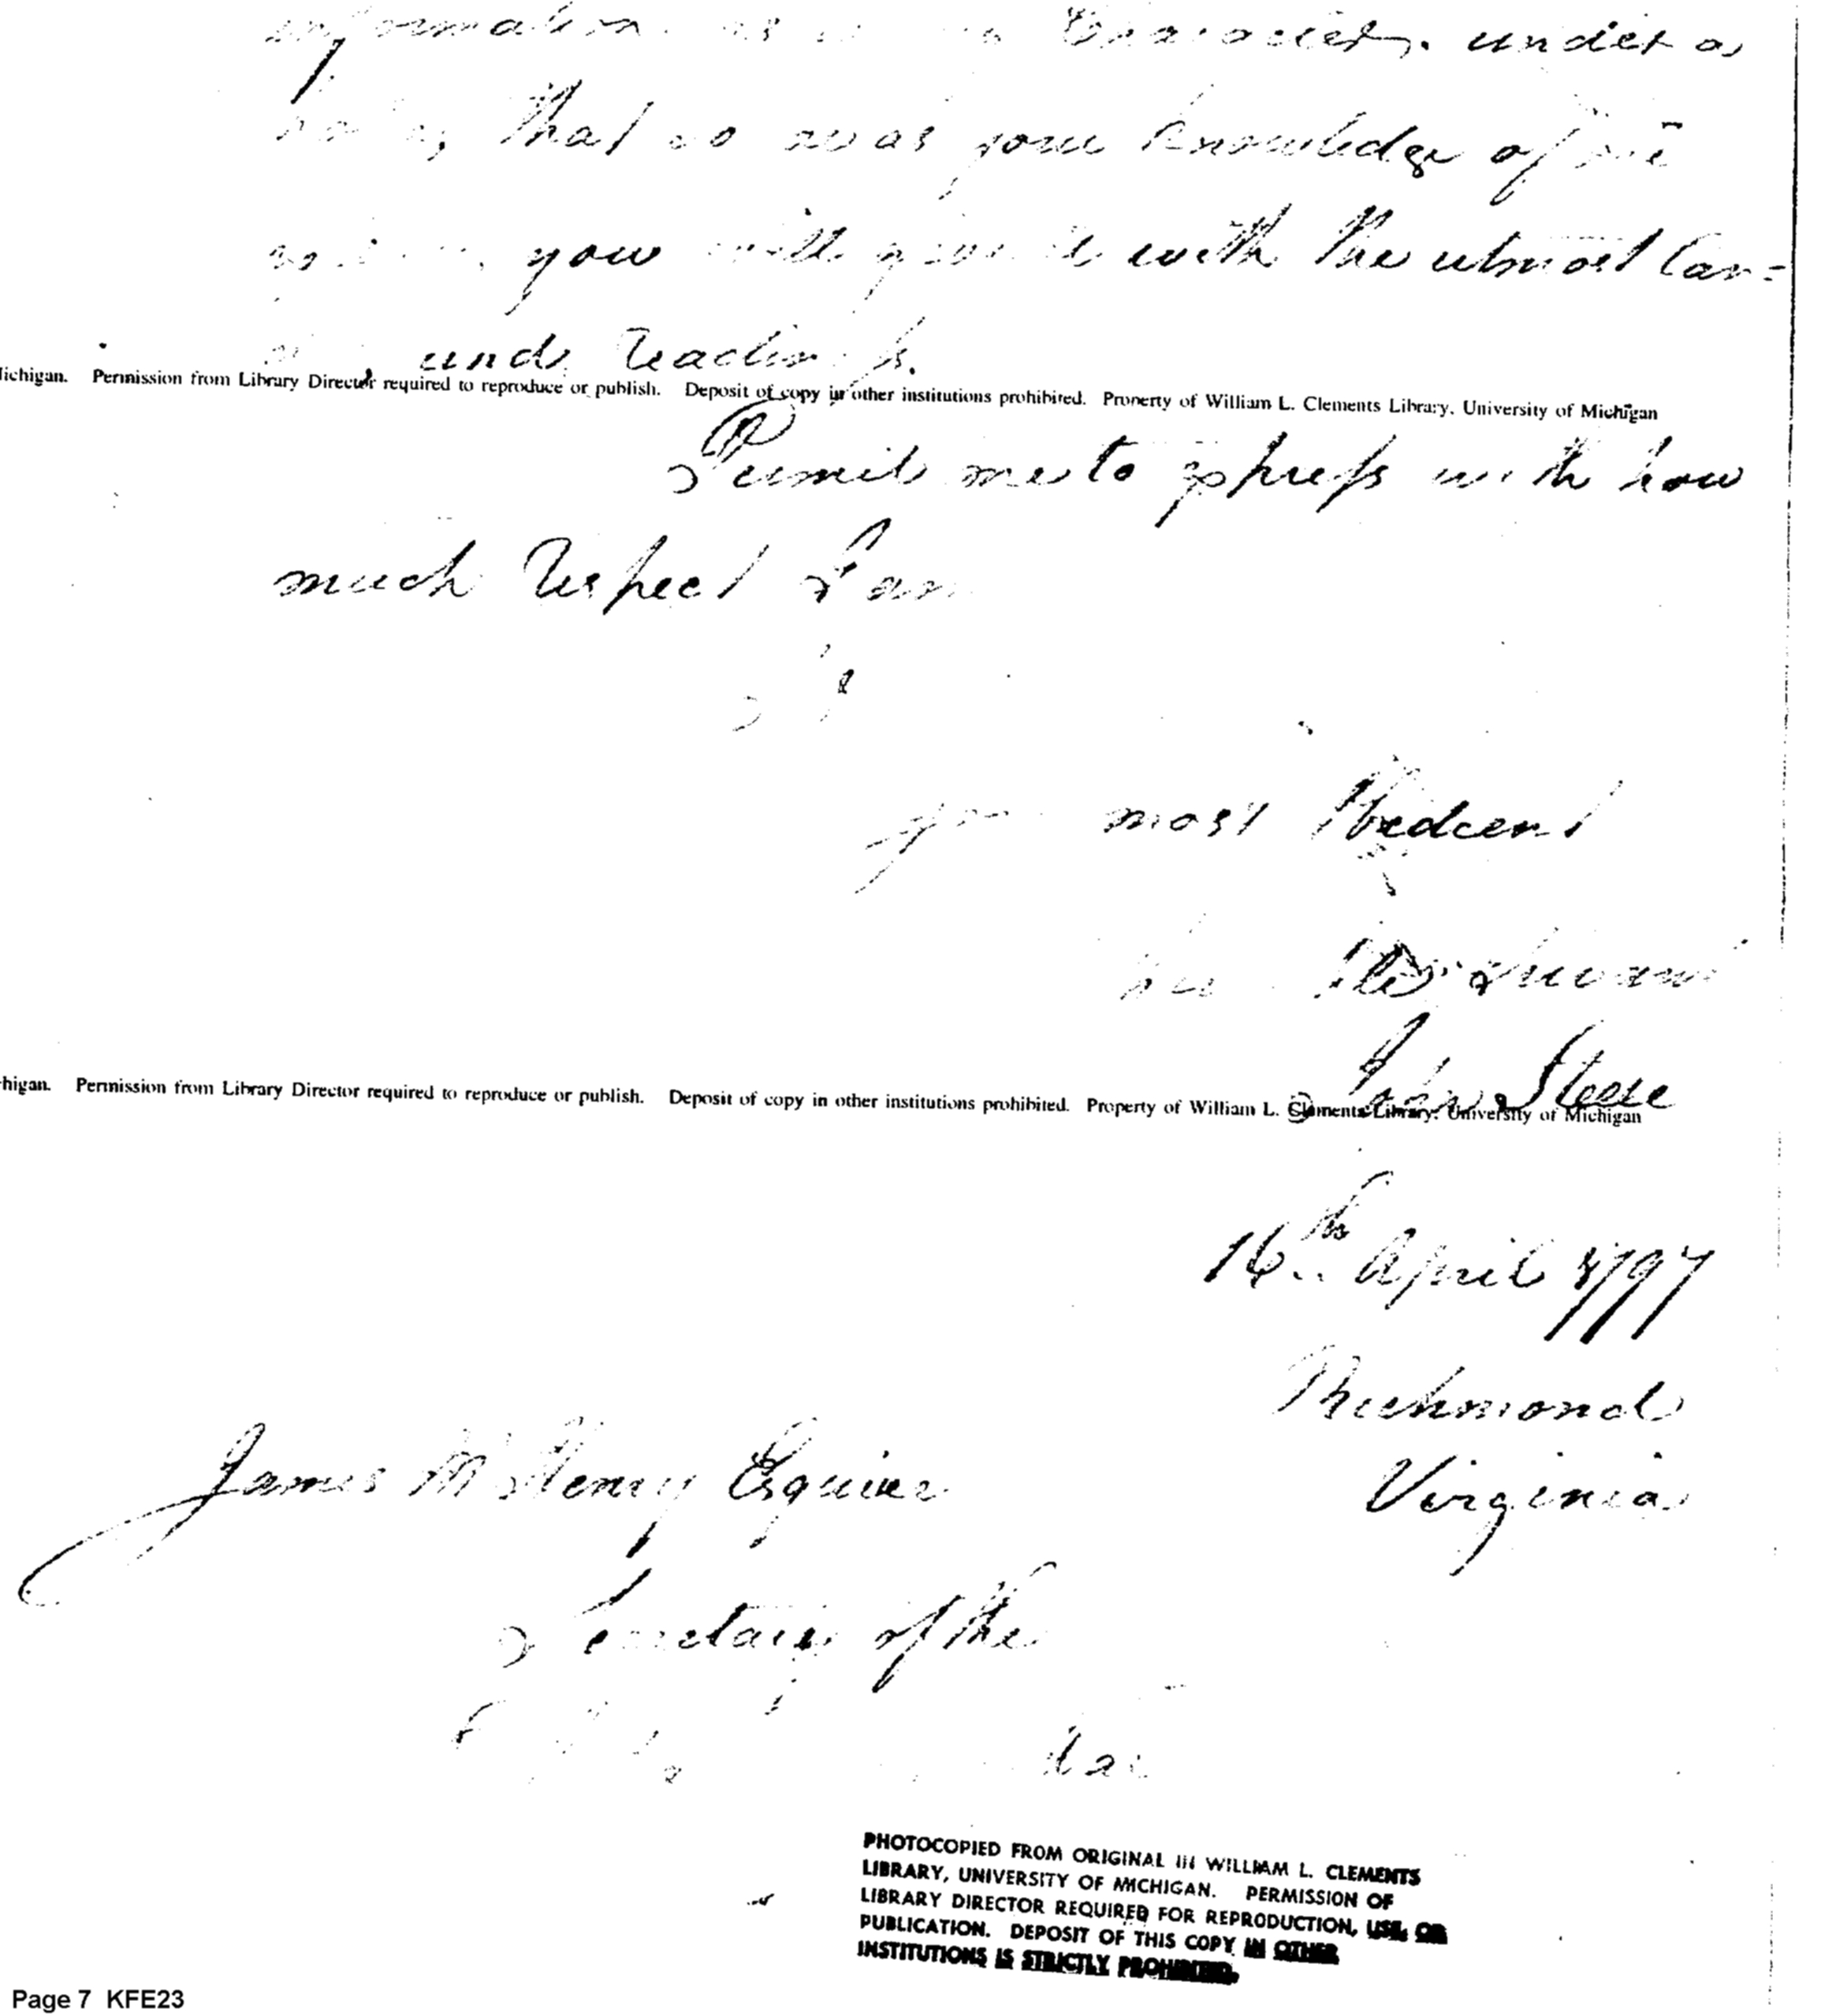 information as to Character, under a
that so far as your knowledge of me
you will give it with the utmost Can=
and readiness.
Michigan. Permission from Library Director required to reproduce or publish. Deposit of copy in other institutions prohibited. Property of William L. Clements Library, University of Michigan
Permit me to express with how
much Respect I am
your most Obedient
Servant
John Steele
higan. Permission from Library Director required to reproduce or publish. Deposit of copy in other institutions prohibited. Property of William L. Clements Library, University of Michigan
16th April 1797
Richmond
Virginia
James McHenry Esquier
Secretary of the
War
PHOTOCOPIED FROM ORIGINAL IN WILLIAM L. CLEMENTS
LIBRARY, UNIVERSITY OF MICHIGAN. PERMISSION OF
LIBRARY DIRECTOR REQUIRED FOR REPRODUCTION, USE, OR
PUBLICATION. DEPOSIT OF THIS COPY IN OTHER
INSTITUTIONS IS STRICTLY PROHIBITED.
Page 7 KFE23